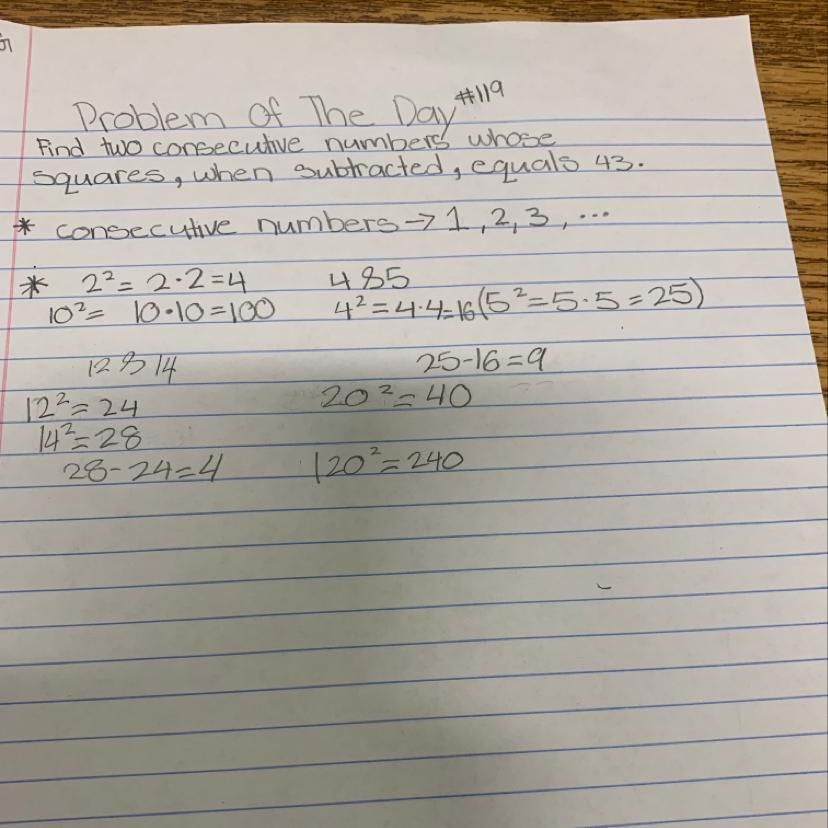 Problem Of The Day #119
Find two consecutive numbers whose
squares, when subtracted, equals 43.
* consecutive numbers → 1, 2, 3, ...
* 2² = 2·2=4 4&5
10² = 10·10=100 4²=4·4=16(5²=5·5=25)
12 & 14 25-16=9
12²=24 20²=40
14²=28
28-24=4 120²=240